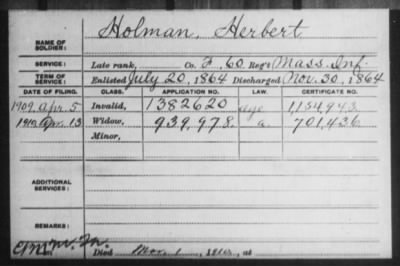 NAME OF SOLDIER: Holman, Herbert
SERVICE: Late rank, Co. F, 60 Reg't Mass. Inf.
TERM OF SERVICE: Enlisted July 20, 1864 Discharged Nov. 30, 1864
DATE OF FILING. CLASS. APPLICATION NO. LAW. CERTIFICATE NO.
1909, Apr. 5 Invalid, 1382620 age 1,154,943.
1910, Apr. 13 Widow, 939,978. a. 701,436
Minor,
ADDITIONAL SERVICES:
REMARKS:
Died Mar. 1, 1910, at